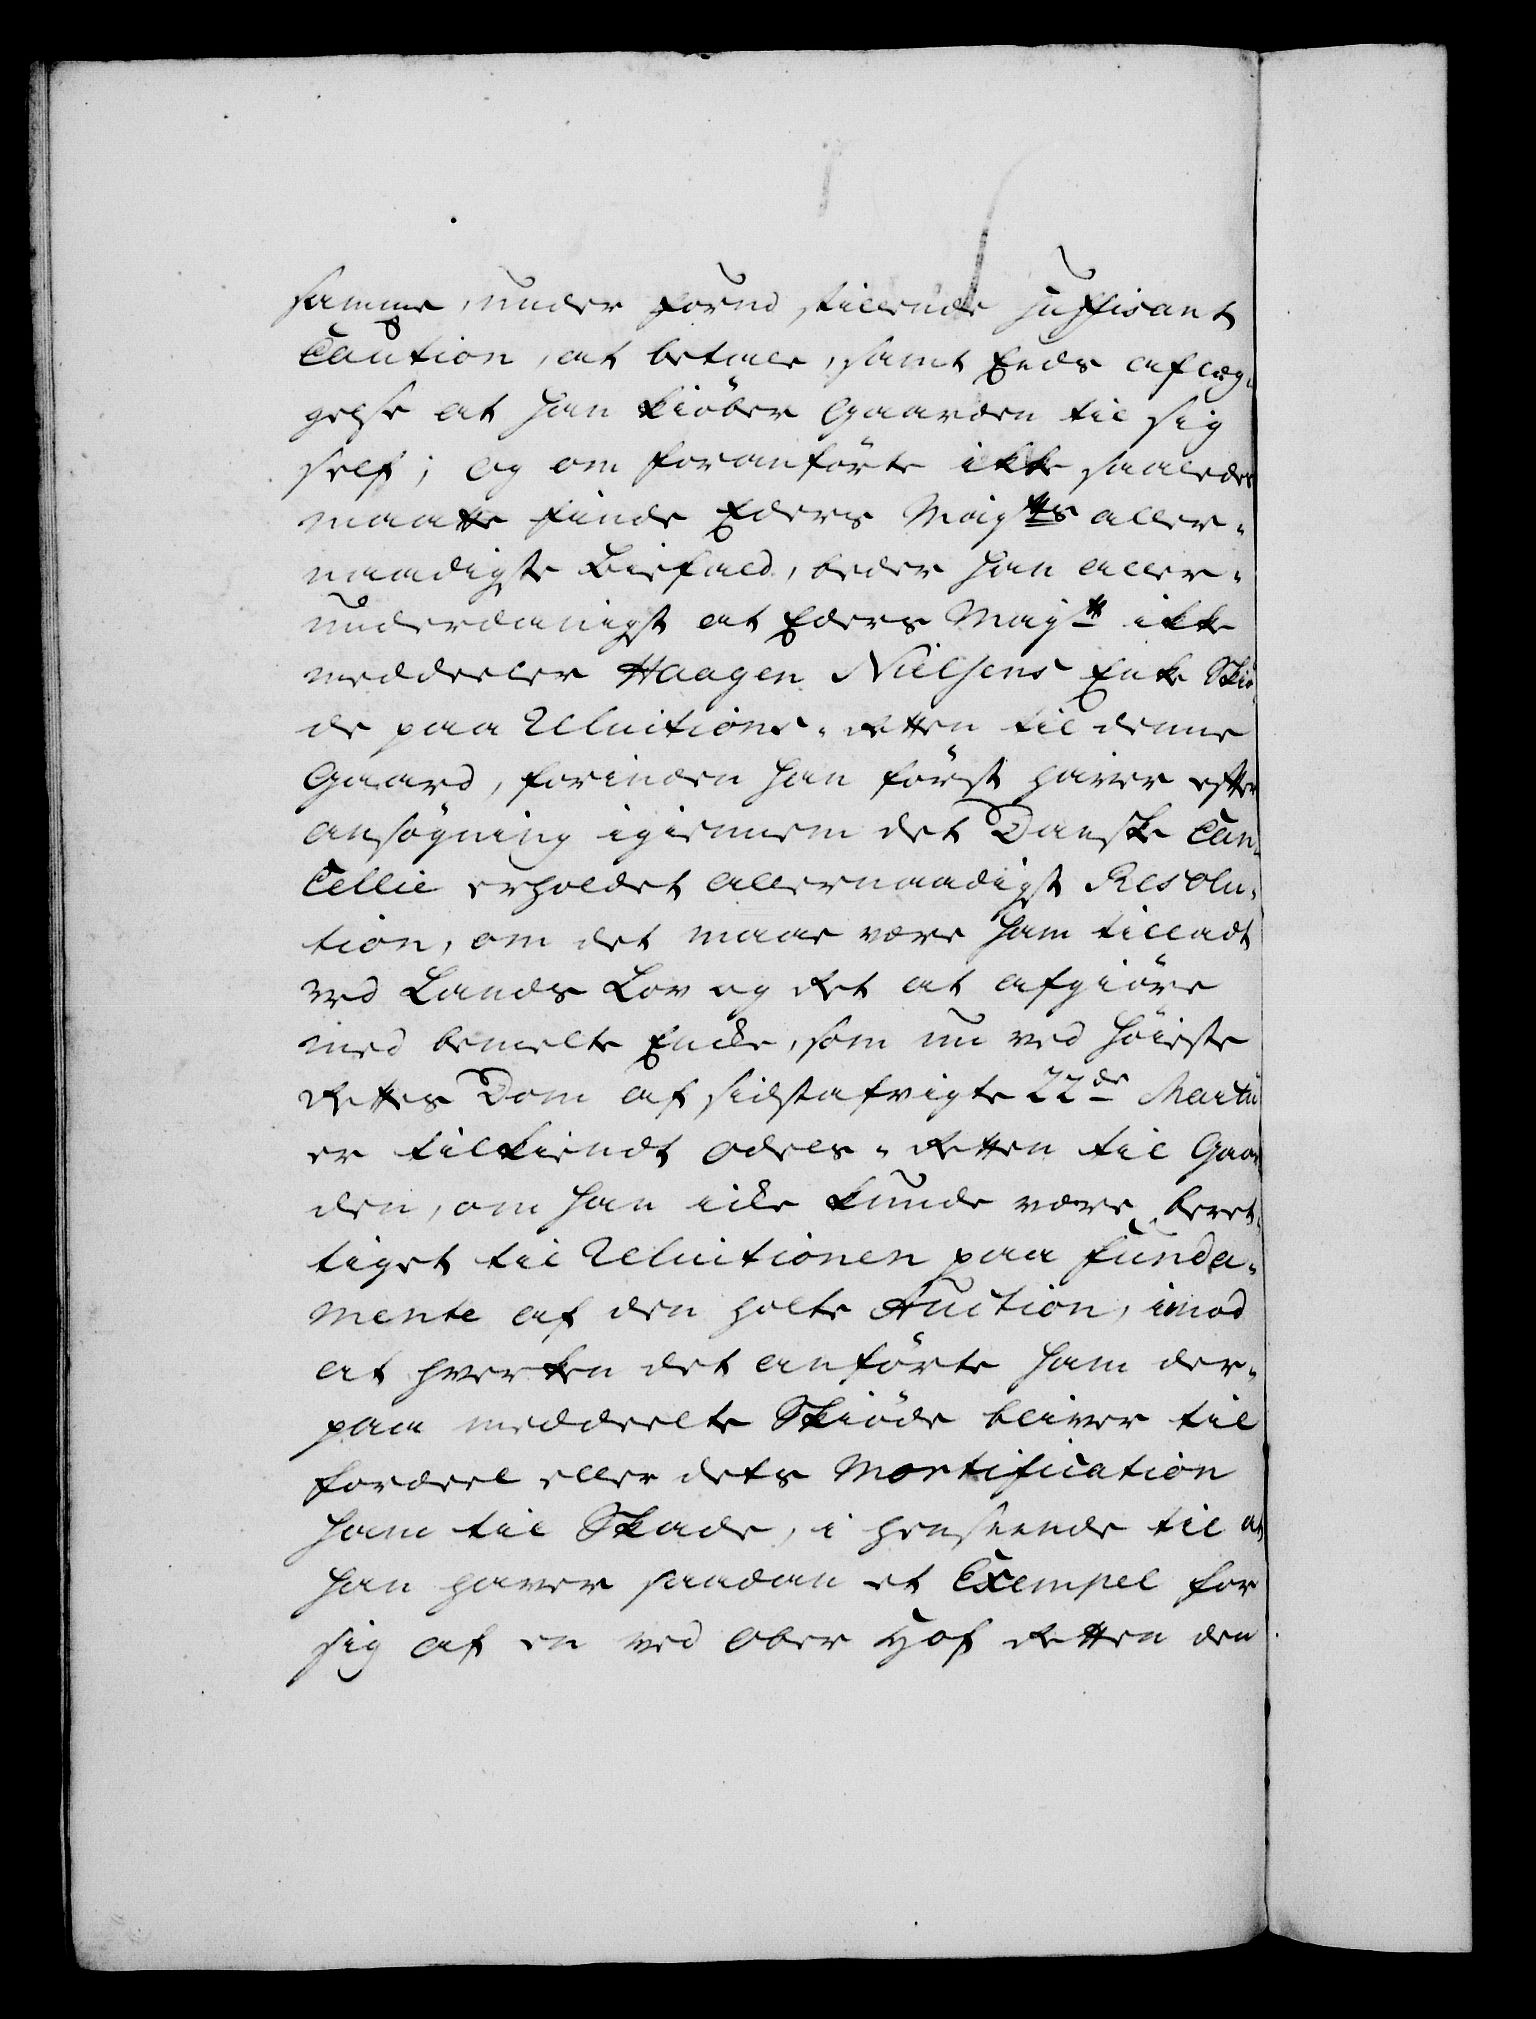 samme, under forud stillende suffisant
Caution, at betale, samt Eeds aflæg-
gelse at han kiöber Gaarden til sig
self; og om foranförte ikke saaledes
maatte finde Eders Mayts aller-
naadigste Biefald, beder han aller-
underdanigst at Eders Mayt ikke
meddeeler Haagen Nielsens Enke Skiö-
de paa Reluitions-Retten til denne
Gaard, forinden han först haver efter
ansögning igiennem det Danske Can-
Cellie erholdet allernaadigst Resolu-
tion, om det maae være ham tilladt
ved Lands Lov og Ret at afgiöre
med bemelte Encke, som nu ved Höieste
Rettes Dom af sidstafvigte 22de Martii
er tilkiendt Odels-Retten til Gaar
den, om han icke kunde være beret-
tiget til Reluitionen paa funda-
mente af den holte Auction, imod
at hverken det anförte ham der-
paa meddeelte Skiöde bliver til
fordeel eller dets Mortification
ham til Skade, i henseende til at
han haver saadan et Exempel for
sig af en ved Ober Hof Retten den